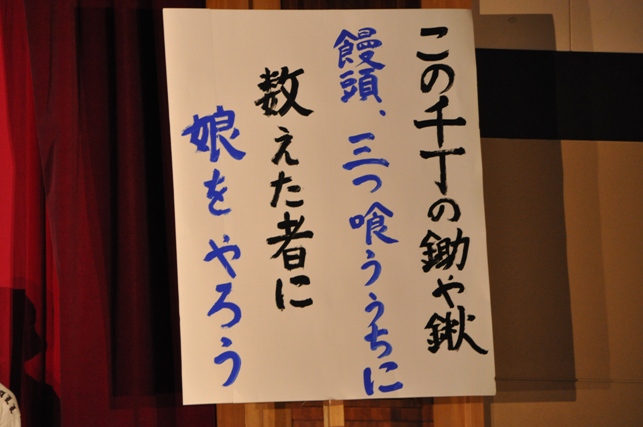 この千丁の鋤や鍬
饅頭、三つ喰ううちに
数えた者に
娘をやろう